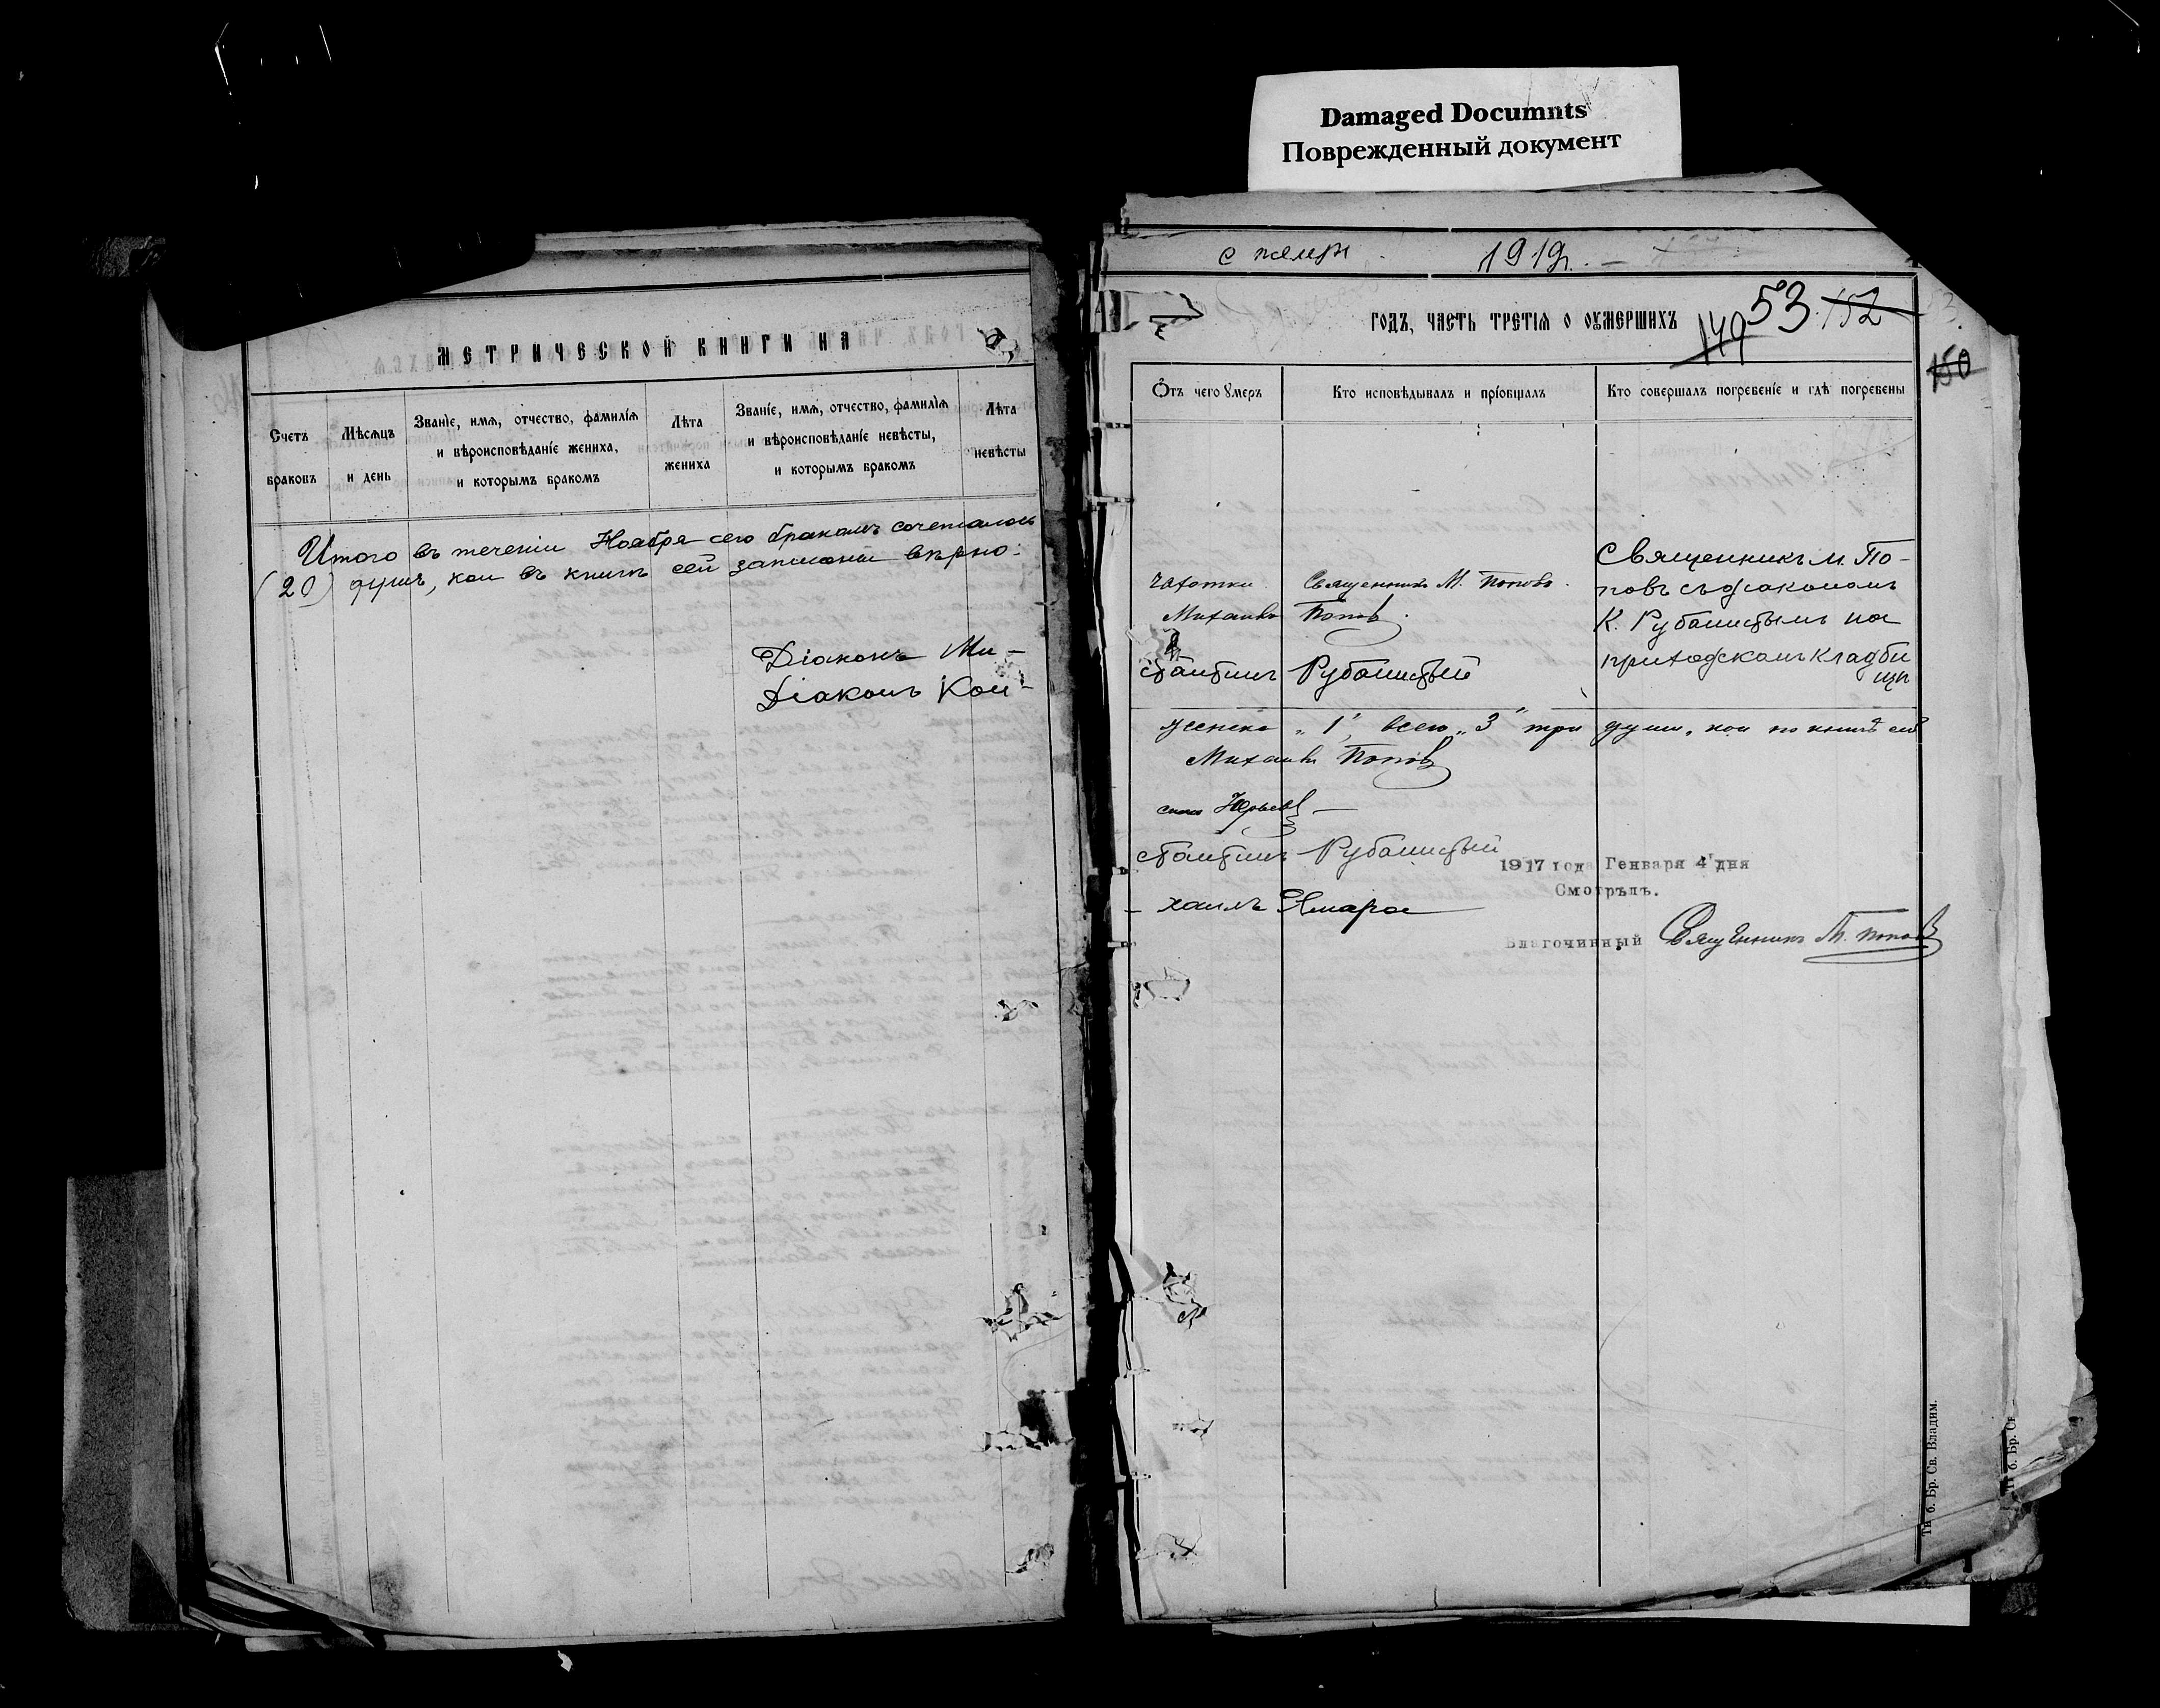 Damaged Documnts
Поврежденный документ
МЕТРИЧЕСКОЙ КНИГИ НА
Счетъ браковъ
Мѣсяцъ и день
Званїе, имя, отчество, фамилїя и вѣроисповѣданїе жениха, и которымъ бракомъ
Лѣта жениха
Званїе, имя, отчество, фамилїя и вѣроисповѣданїе невѣсты, и которымъ бракомъ
Лѣта невѣсты
Итого въ теченіи Ноября сего бракомъ сочеталось
(20) душъ, кои въ книгѣ сей записаны вѣрно:
Діаконъ Ми-
Діаконъ Кон-
1919г.
ГОДЪ, ЧАСТЬ ТРЕТЇЯ О ОУМЕРШИХЪ
53 152
149
150
Ѿтъ чего ꙋмеръ
Кто исповѣдывалъ и прїобщалъ
Кто совершалъ погребенїе и гдѣ погребены
чахотки
Священникъ М. Поповъ.
Священникъ М. По-
повъ съ діакономъ
К. Рубанистымъ на
приходскомъ кладби
щѣ
Михаилъ Поповъ
стантинъ Рубанистый
женска „1", всего „3" три души, кои по книгѣ сей
Михаилъ Поповъ
стантинъ Рубанистый
хаилъ Ямара
1917 года Генваря 4 дня
Смотрѣлъ.
Благочинный Священникъ М. Поповъ
Тип. б. Бр. Св. Владим.